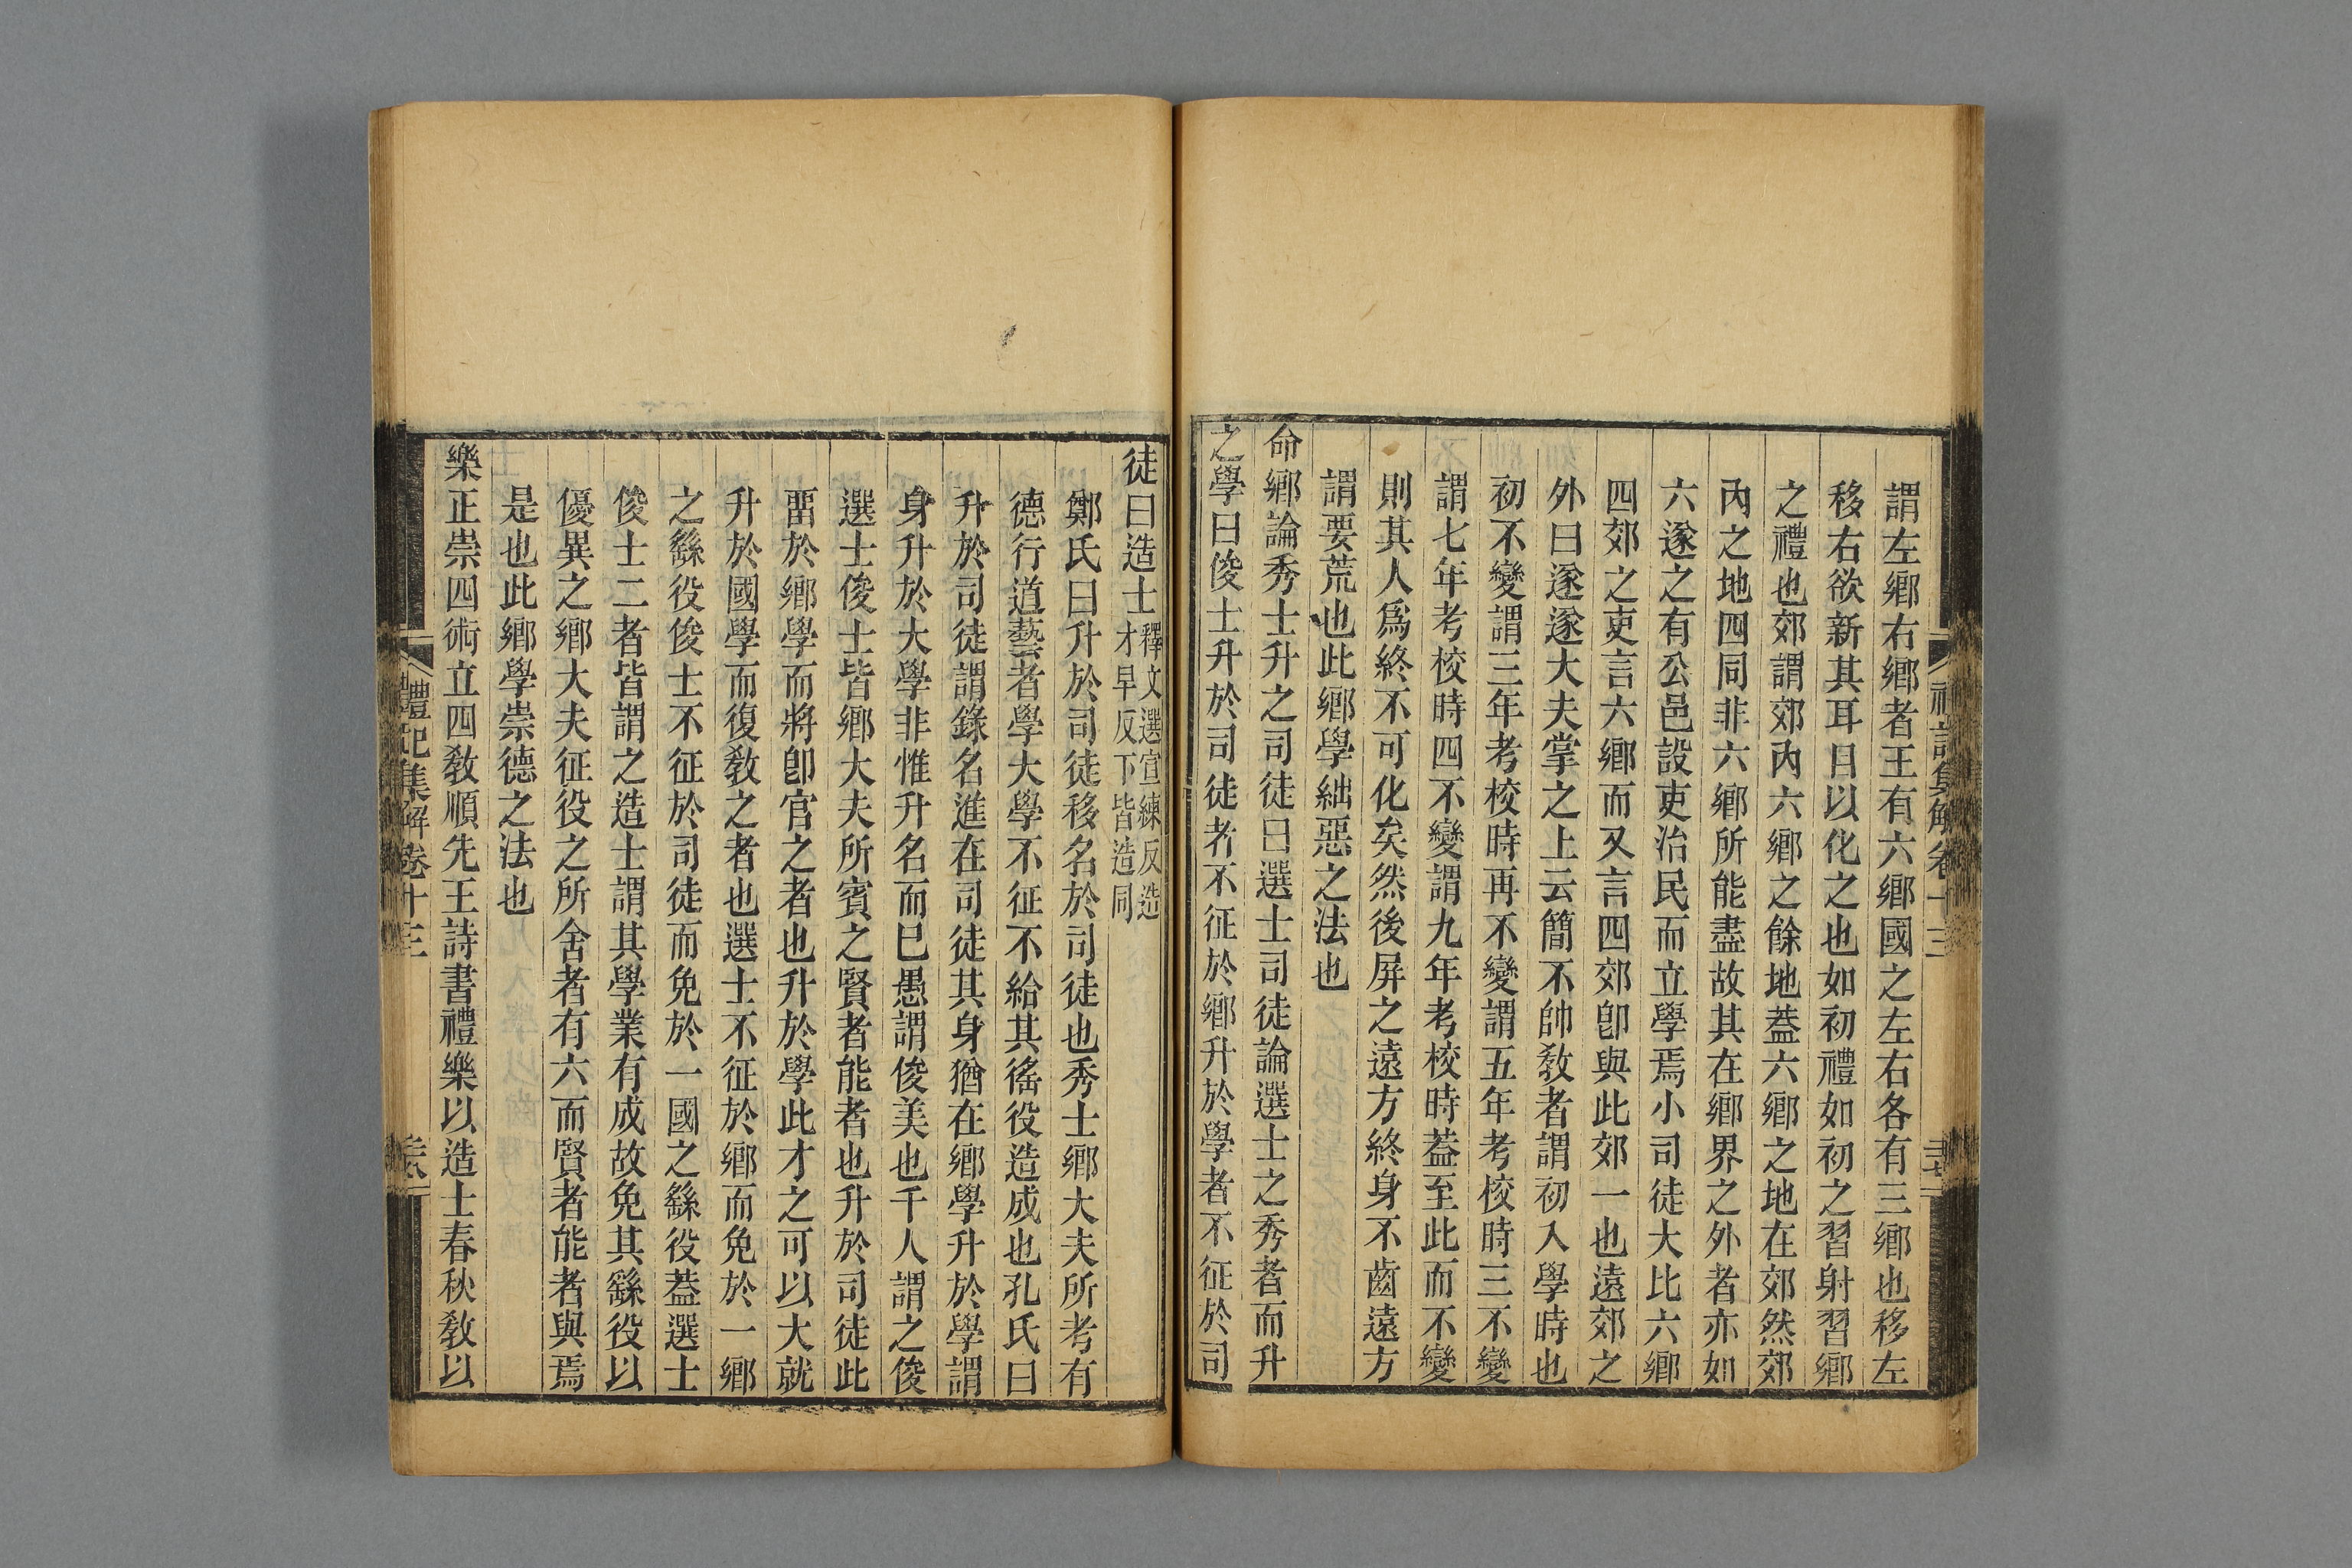 謂左鄉右鄉者王有六鄉國之左右各有三鄉也移左
移右欲新其耳目以化之也如初禮如初之習射習鄉
之禮也郊謂郊內六鄉之餘地蓋六鄉之地在郊然郊
內之地四同非六鄉所能盡故其在鄉界之外者亦如
六遂之有公邑設吏治民而立學焉小司徒大比六鄉
四郊之吏言六鄉而又言四郊卽與此郊一也遠郊之
外曰遂遂大夫掌之上云簡不帥敎者謂初入學時也
初不變謂三年考校時再不變謂五年考校時三不變
謂七年考校時四不變謂九年考校時蓋至此而不變
則其人爲終不可化矣然後屏之遠方終身不齒遠方
謂要荒也此鄉學絀惡之法也
命鄉論秀士升之司徒曰選士司徒論選士之秀者而升
之學曰俊士升於司徒者不征於鄉升於學者不征於司
禮記集解卷十三
徒曰造士釋文選宣練反造
才早反下皆造同
鄭氏曰升於司徒移名於司徒也秀士鄉大夫所考有
德行道藝者學大學不征不給其徭役造成也孔氏曰
升於司徒謂錄名進在司徒其身猶在鄉學升於學謂
身升於大學非惟升名而已愚謂俊美也千人謂之俊
選士俊士皆鄉大夫所賓之賢者能者也升於司徒此
畱於鄉學而將卽官之者也升於學此才之可以大就
升於國學而復敎之者也選士不征於鄉而免於一鄉
之繇役俊士不征於司徒而免於一國之繇役蓋選士
俊士二者皆謂之造士謂其學業有成故免其繇役以
優異之鄉大夫征役之所舍者有六而賢者能者與焉
是也此鄉學崇德之法也
樂正崇四術立四敎順先王詩書禮樂以造士春秋敎以
禮記集解卷十三